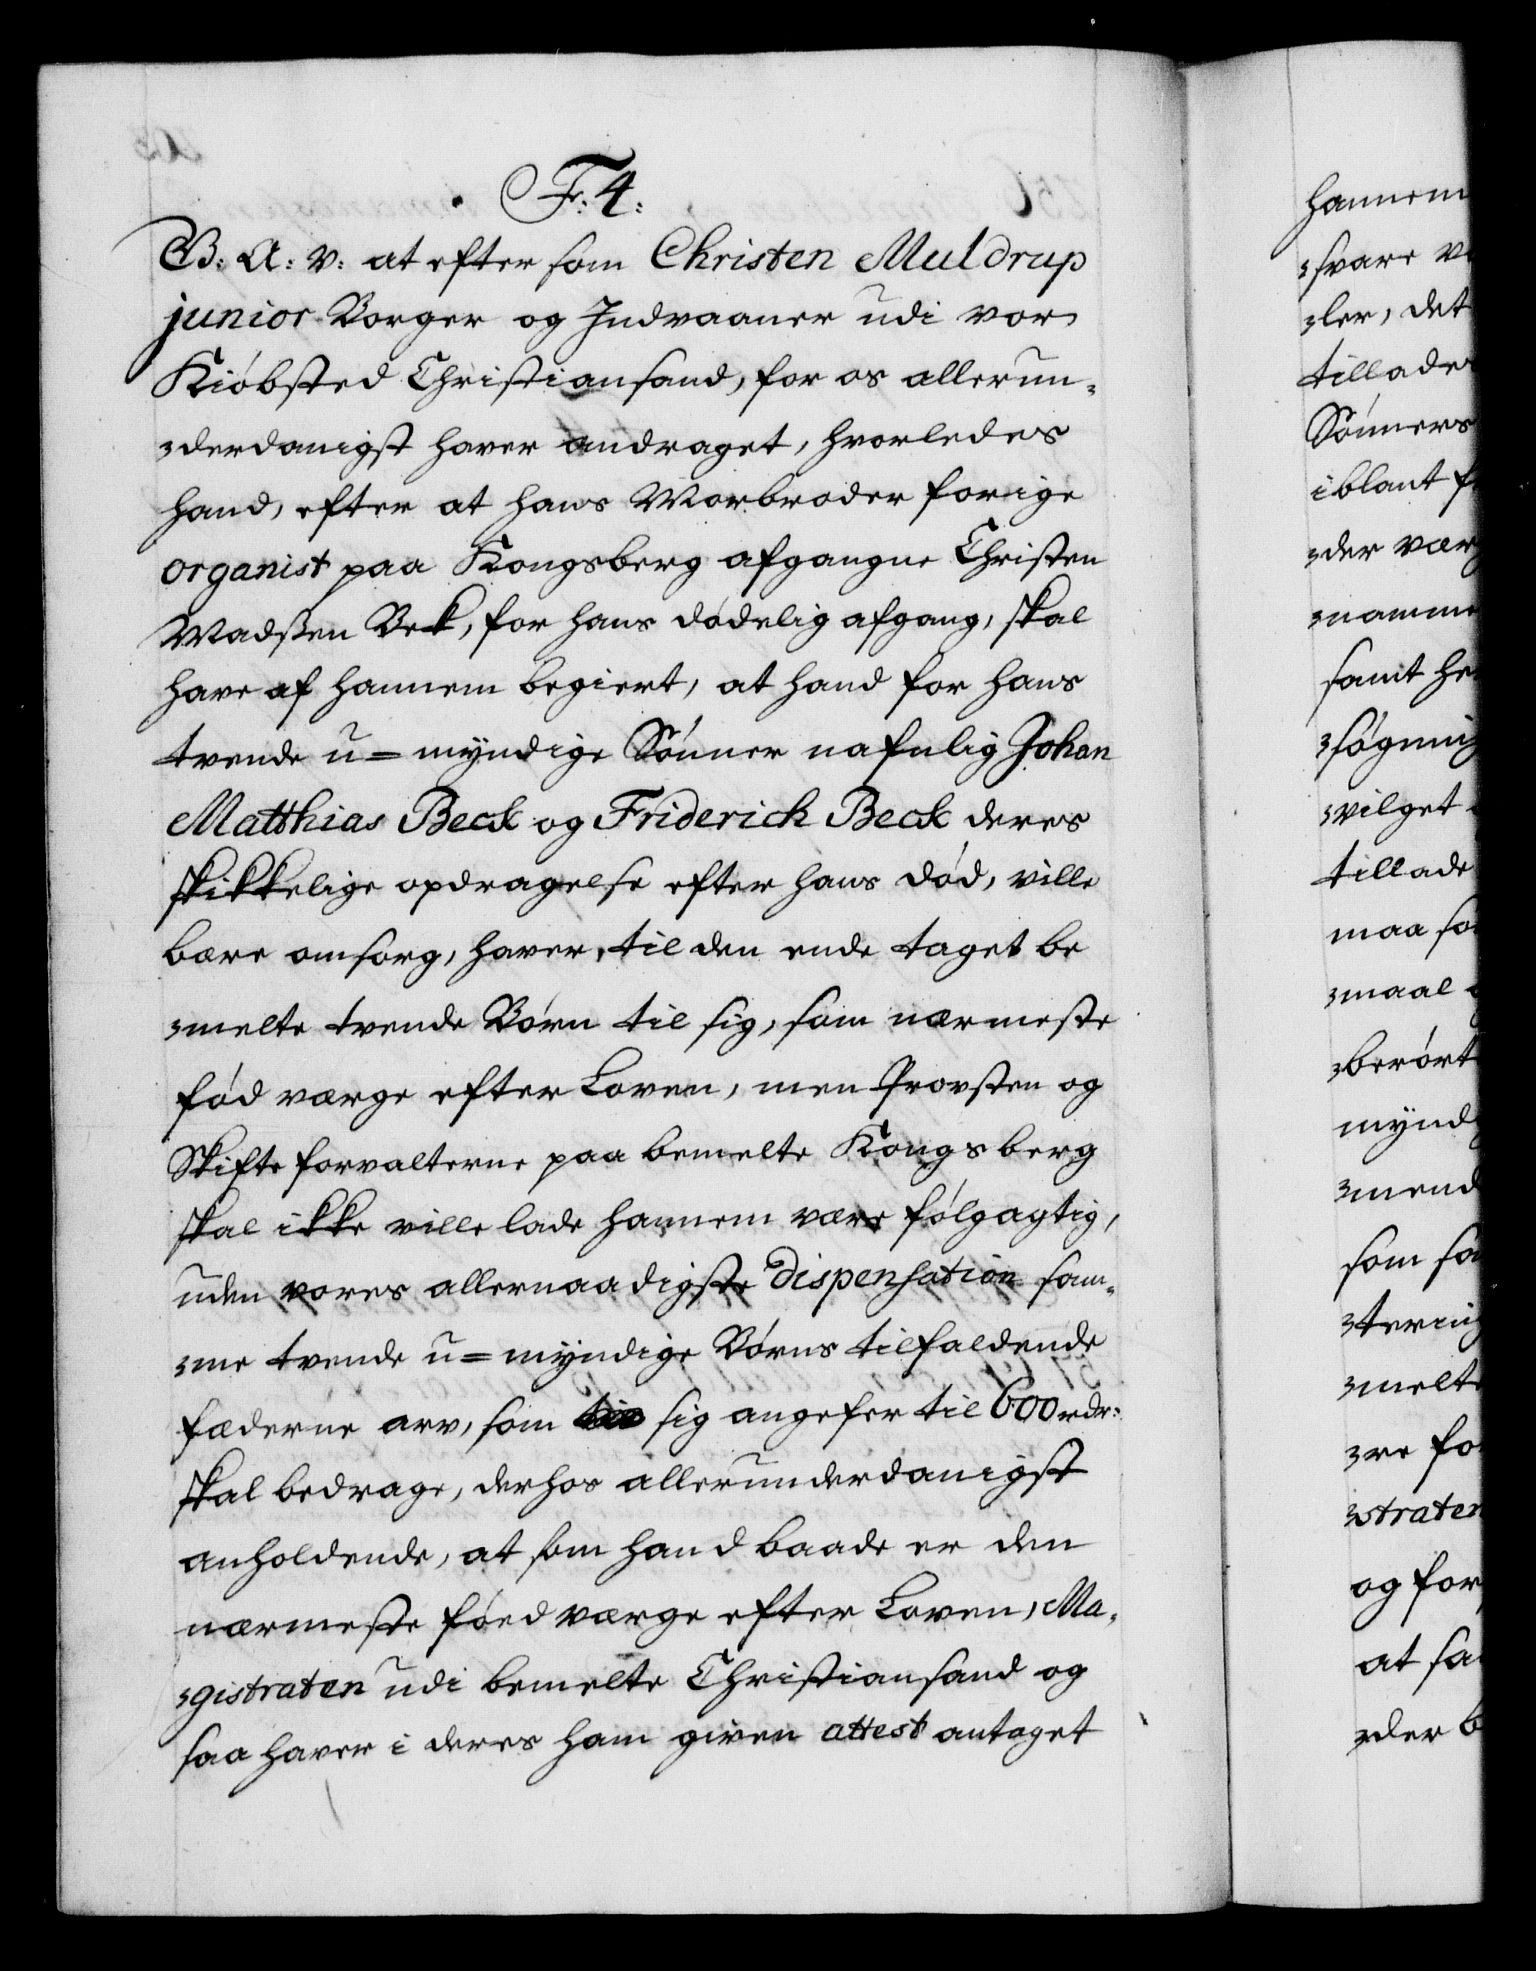 F: 4:
G: A: v: at efter som Christen Muldrup
junior Borger og Indvaaner udi vor
Kiøbsted Christiansand, for os allerun-
-derdanigst haver andraget, hvorledes
hand, efter at hans Morbroder forige
organist paa Kongsberg afgangne Christen
Madssen Bek, for hans dødelig afgang, skal
have af hannem begiert, at hand for hans
tvende u=myndige Sønner nafnlig Johan
Matthias Beck og Friderich Beck deres
skikkelige opdragelse efter hans død, ville
bære omsorg, haver, til den ende taget be
-melte tvende Børn til sig, som nærmeste
fød værge efter Loven, men Provsten og
Skifte forvalterne paa bemelte Kongsberg
skal ikke ville lade hannem være følgagtig,
uden vores allernaadigste dispensation sam-
-me tvende u=myndige Børns tilfaldende
fæderne arv, som sig angefer til 600 rdr:
skal bedrage, derhos allerunderdanigst
anholdende, at som hand baade er den
nærmeste føed værge efter Loven, Ma-
-gistraten udi bemelte Christiansand og
saa haver i deres ham given attest antaget
hannem
-svare
-ler, det
tillade
Sønners
iblant
-der vær
-namme
samt
-søgning
-vilget
tillade
maa
-maal
-berørt
mynd
-mend
som
-tering
-melte
-re
-straten
og for
at
-der